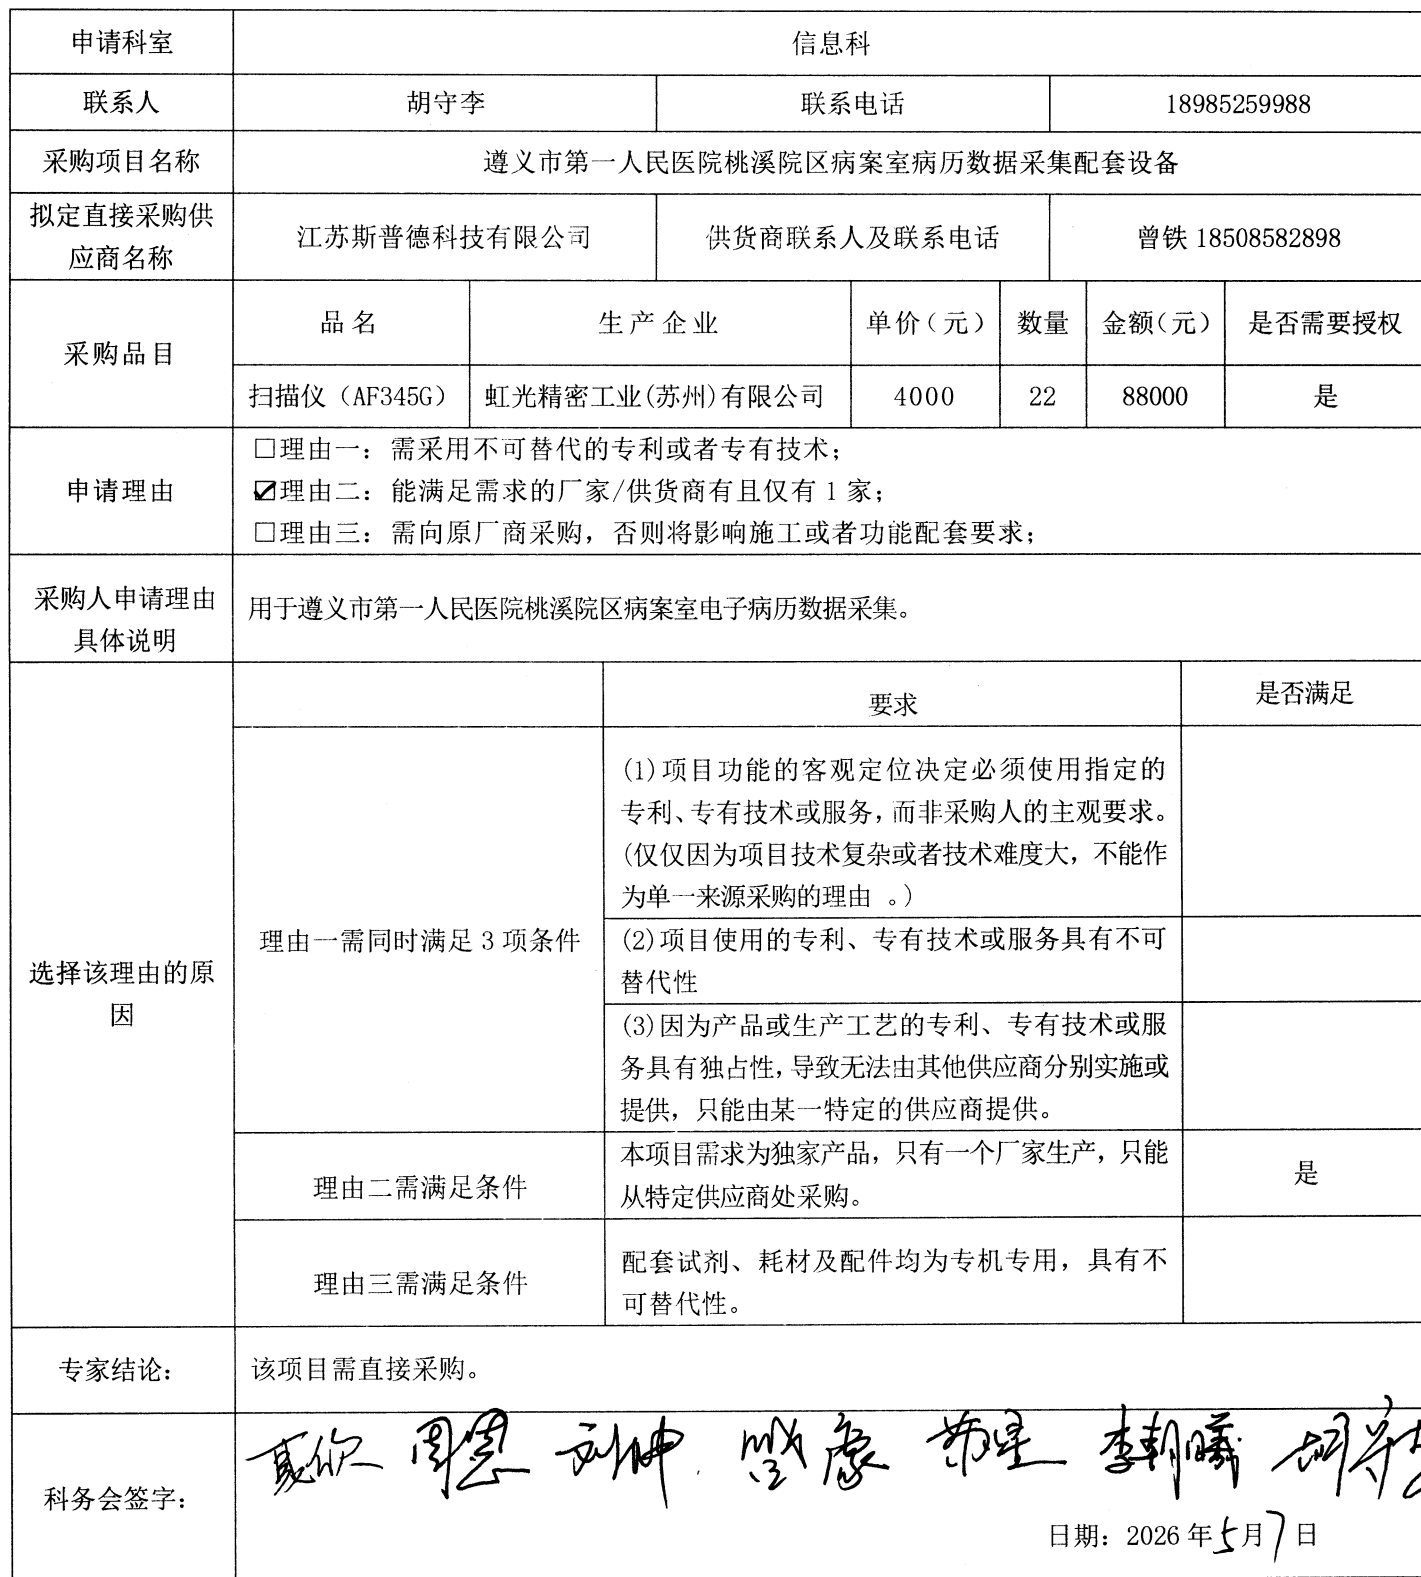 申请科室 信息科
联系人 胡守李 联系电话 18985259988
采购项目名称 遵义市第一人民医院桃溪院区病案室病历数据采集配套设备
拟定直接采购供
应商名称
江苏斯普德科技有限公司 供货商联系人及联系电话 曾铁 18508582898
采购品目
品名 生产企业 单价（元） 数量 金额（元） 是否需要授权
扫描仪（AF345G） 虹光精密工业(苏州)有限公司 4000 22 88000 是
申请理由
□理由一：需采用不可替代的专利或者专有技术；
☑理由二：能满足需求的厂家/供货商有且仅有 1 家；
□理由三：需向原厂商采购，否则将影响施工或者功能配套要求；
采购人申请理由
具体说明
用于遵义市第一人民医院桃溪院区病案室电子病历数据采集。
选择该理由的原
因
要求 是否满足
理由一需同时满足 3 项条件
(1)项目功能的客观定位决定必须使用指定的
专利、专有技术或服务，而非采购人的主观要求。
(仅仅因为项目技术复杂或者技术难度大，不能作
为单一来源采购的理由 。)
(2)项目使用的专利、专有技术或服务具有不可
替代性
(3)因为产品或生产工艺的专利、专有技术或服
务具有独占性，导致无法由其他供应商分别实施或
提供，只能由某一特定的供应商提供。
理由二需满足条件
本项目需求为独家产品，只有一个厂家生产，只能
从特定供应商处采购。
是
理由三需满足条件
配套试剂、耗材及配件均为专机专用，具有不
可替代性。
专家结论： 该项目需直接采购。
科务会签字：
李朝曦 胡守
日期：2026 年 5 月 7 日